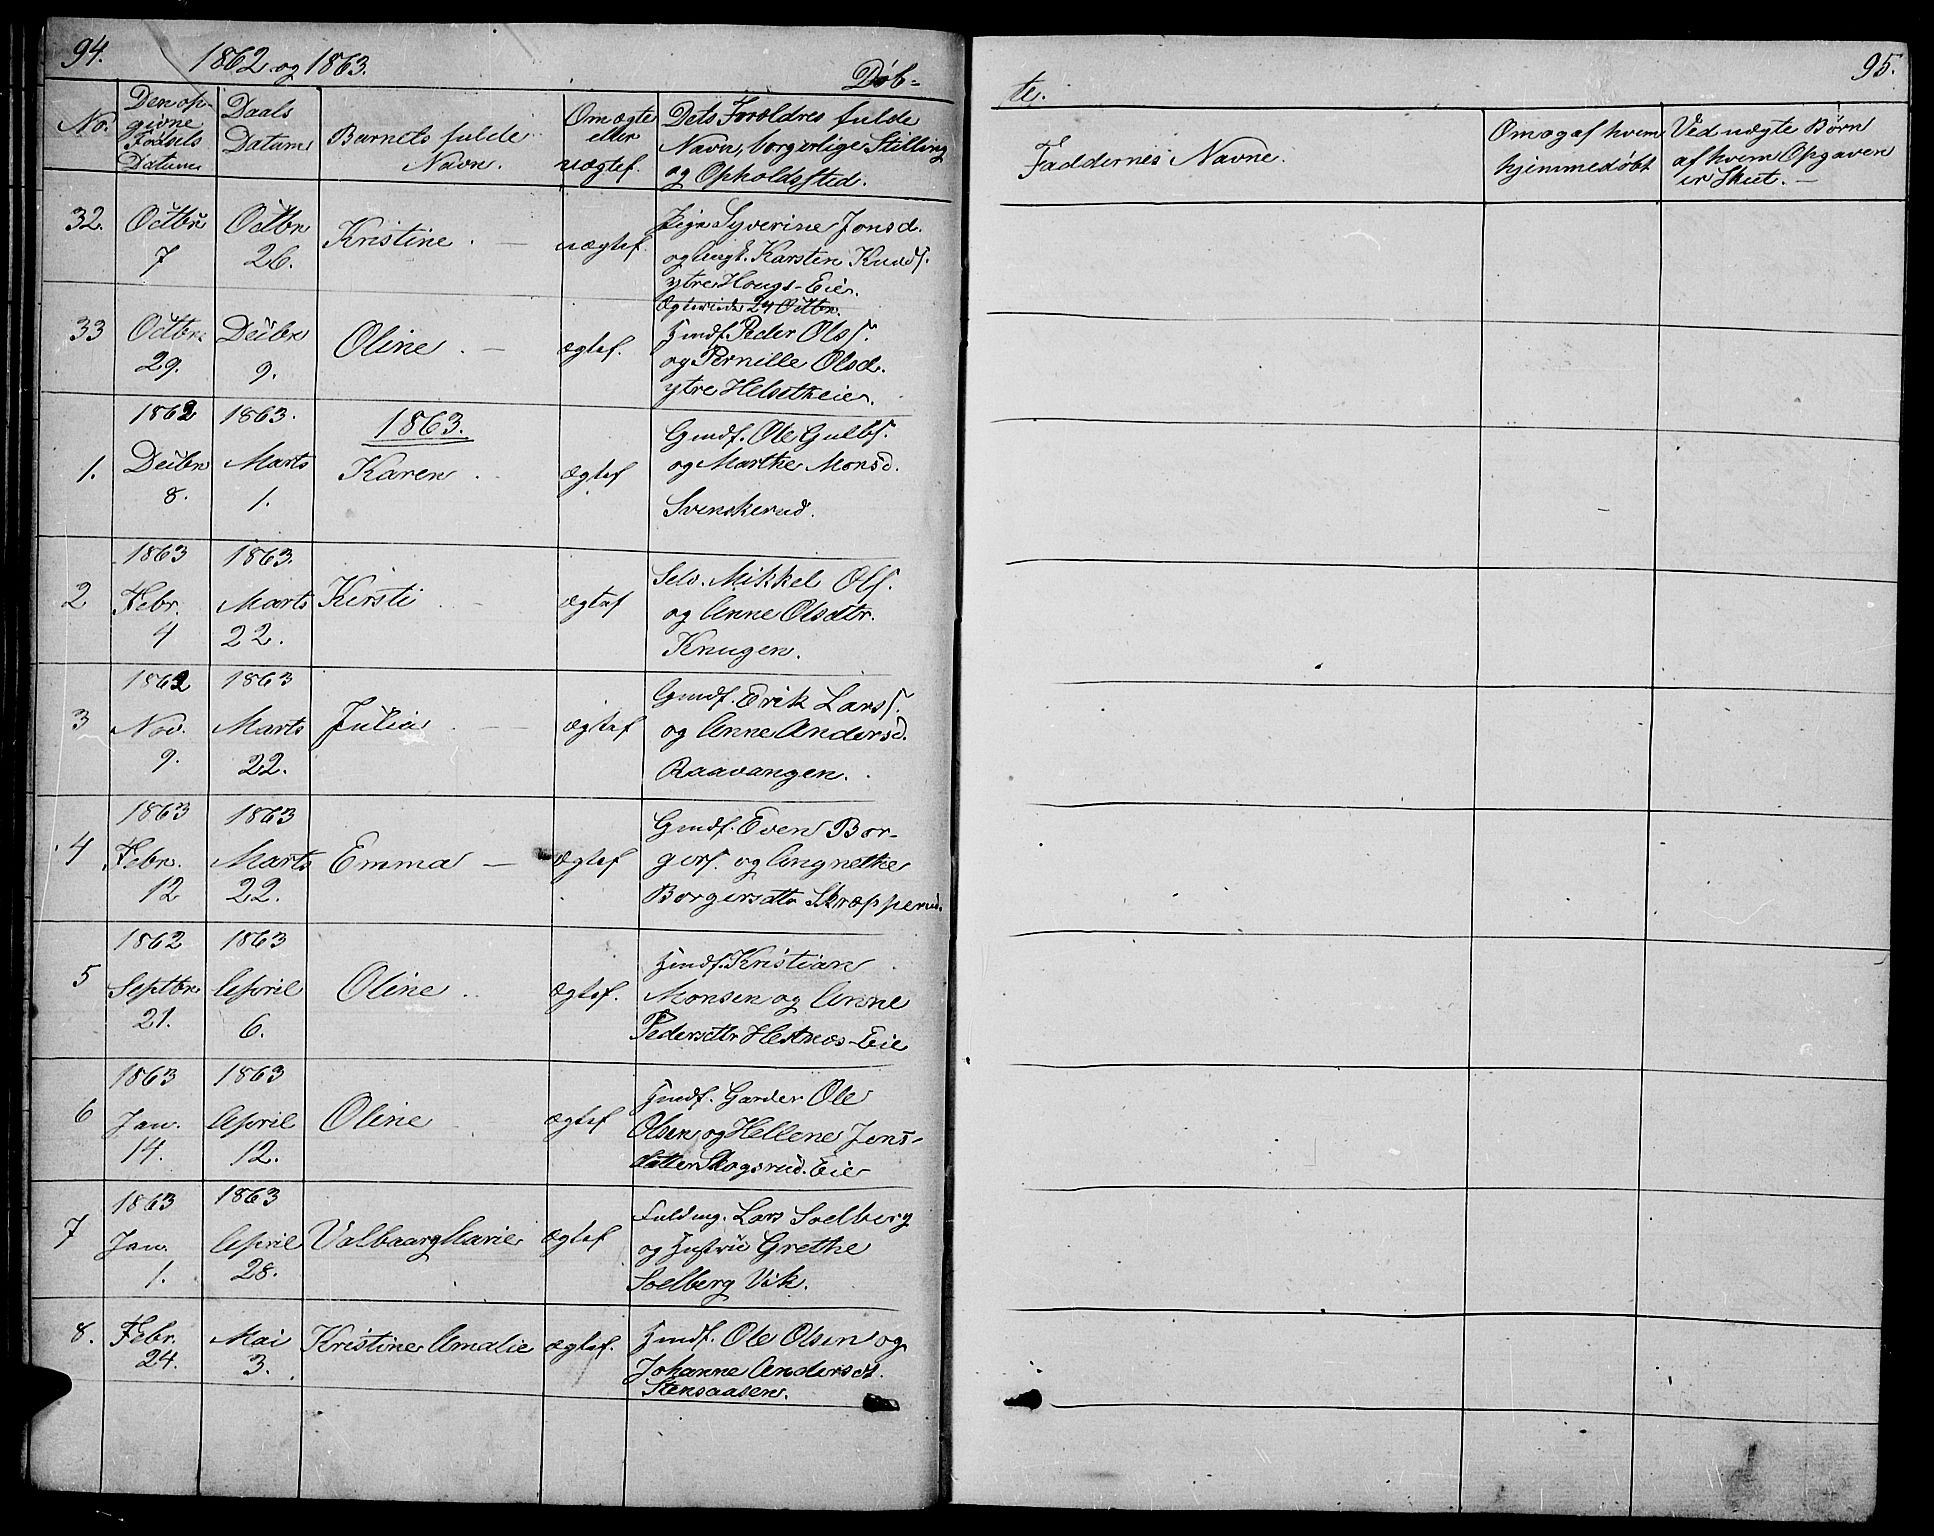 94.
1862 og 1863.
Døb-
No.
Den op-
givne
Fødsels
Datum.
Daabs
Datum
Barnets fulde
Navn.
Om ægte
eller
uægtef.
Dets Forældres fulde
Navn, borgerlige Stilling
og Opholdssted.
32.
Octbr
7
Octbr
26.
Kristine
uægtef.
Pige Syverine Jonsd.
og Ungk. Karsten Knuds.
ytre Hougs-Eie.
24 Octbr.
33
Octbr.
29.
Decbr
9.
Oline
ægtef.
Hmdf. Peder Ols.
og Pernille Olsd.
ytre Helsetheie.
1863.
1.
1862
Decbr
8.
1863.
Marts
1.
Karen
ægtef
Gmdf. Ole Gulbs.
og Marthe Monsd.
Svenskerud.
2
1863
Febr.
4
1863.
Marts
22.
Kirsti
ægtef
Selv. Mikkel Ols.
og Anne Olsdtr.
Knugen.
3
1862
Nov.
9.
1863
Marts
22.
Julia
ægtef
Gmdf. Erik Lars.
og Anne Andersd.
Raavangen.
4
1863
Febr.
12
1863
Marts
22.
Emma
ægtef
Gmdf. Even Bor-
gers. og Angnethe
Borgersdtr Skrapperud.
5
1862
Septbr
21.
1863
April
6.
Oline
ægtef.
Hmdf. Kristian
Monsen og Anne
Pedersdtr Hestnæs-Eie
6
1863
Jan.
14.
1863
April
12.
Oline
ægtef
Hmdf. Garder Ole
Olsen og Hellene Jens-
datter Skogsrud. Eie
7
1863
Jan.
1.
1863
April
28.
Valbaarg Marie
ægtef
Fuldmg. Lars Soelberg
og Hustru Grethe
Soelberg Vik.
8.
Febr.
24.
Mai
3.
Kristine Amalie
ægtef.
Hmdf. Ole Olsen og
Johanne Andersd.
Stensaasen.
te.
95.
Faddernes Navne.
Om og af hvem
hjemmedøbt
Ved uægte Børn
af hvem Opgaven
er Skeet.